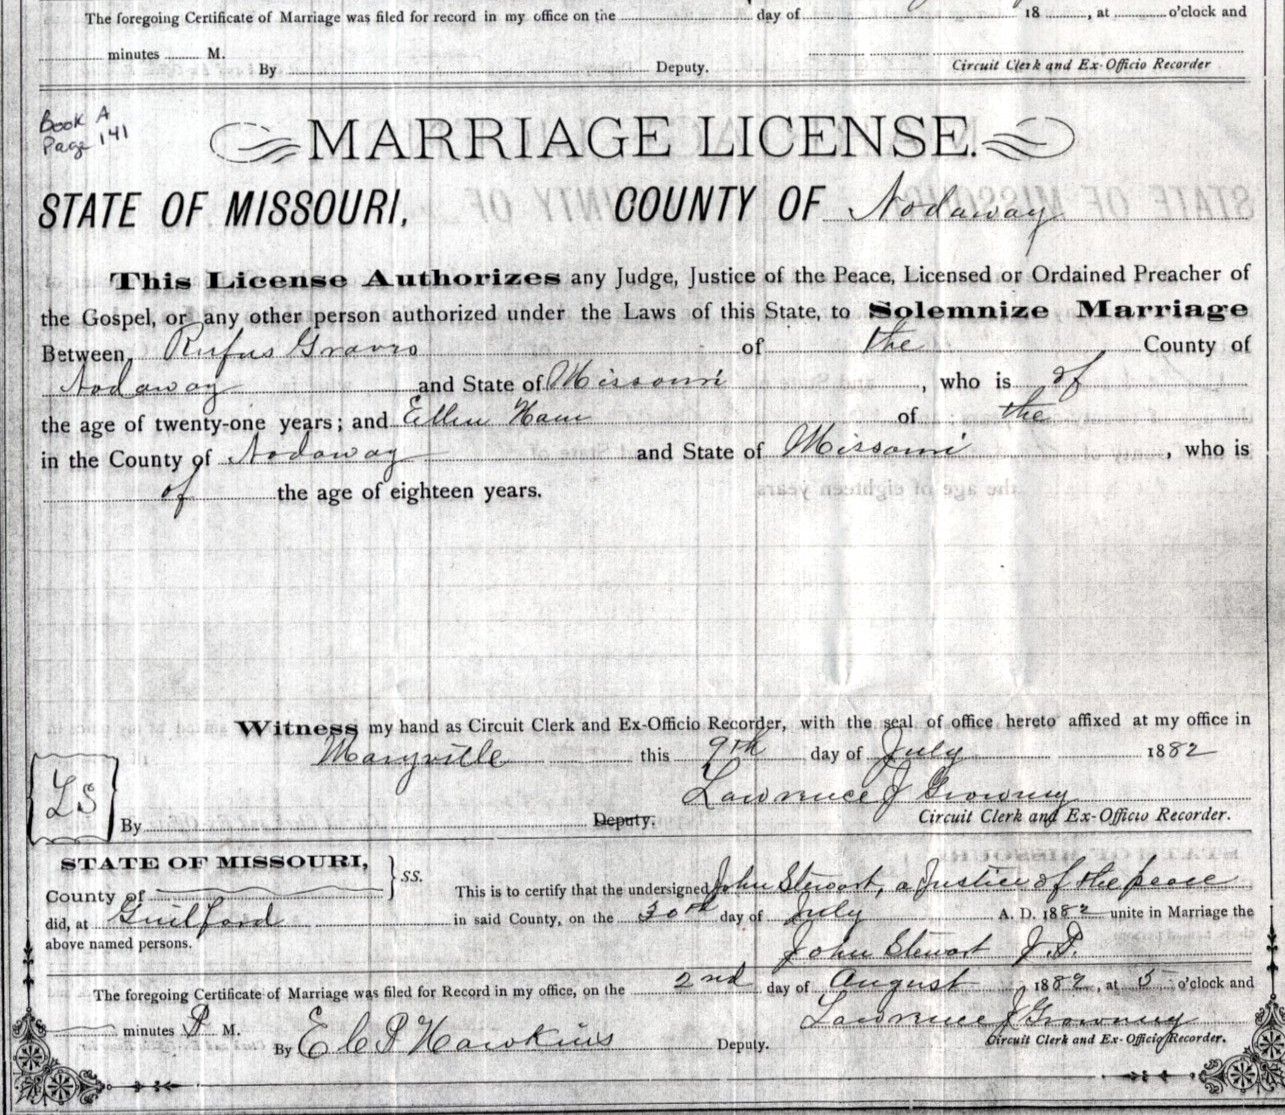 The foregoing Certificate of Marriage was filed for record in my office on the day of 18 , at o'clock and
minutes M.
By Deputy. Circuit Clerk and Ex-Officio Recorder
Book A
Page 141
MARRIAGE LICENSE.
STATE OF MISSOURI, COUNTY OF Nodaway
This License Authorizes any Judge, Justice of the Peace, Licensed or Ordained Preacher of
the Gospel, or any other person authorized under the Laws of this State, to Solemnize Marriage
Between, Rufus Graves of the County of
Nodaway and State of Missouri , who is of
the age of twenty-one years; and Ellen Ham of the
in the County of Nodaway and State of Missouri , who is
of the age of eighteen years.
Witness my hand as Circuit Clerk and Ex-Officio Recorder, with the seal of office hereto affixed at my office in
Maryville this 9th day of July 1882
LS
Lawrence J Growney
By Deputy. Circuit Clerk and Ex-Officio Recorder.
STATE OF MISSOURI, } ss.
County of This is to certify that the undersigned John Stewart, a Justice of the peace
did, at Guilford in said County, on the 30th day of July A. D. 1882 unite in Marriage the
above named persons. John Stewart J.P.
The foregoing Certificate of Marriage was filed for Record in my office, on the 2nd day of August , 1882, at 5 o'clock and
minutes P M. Lawrence J Growney
By E C P Hawkins Deputy. Circuit Clerk and Ex-Officio Recorder.